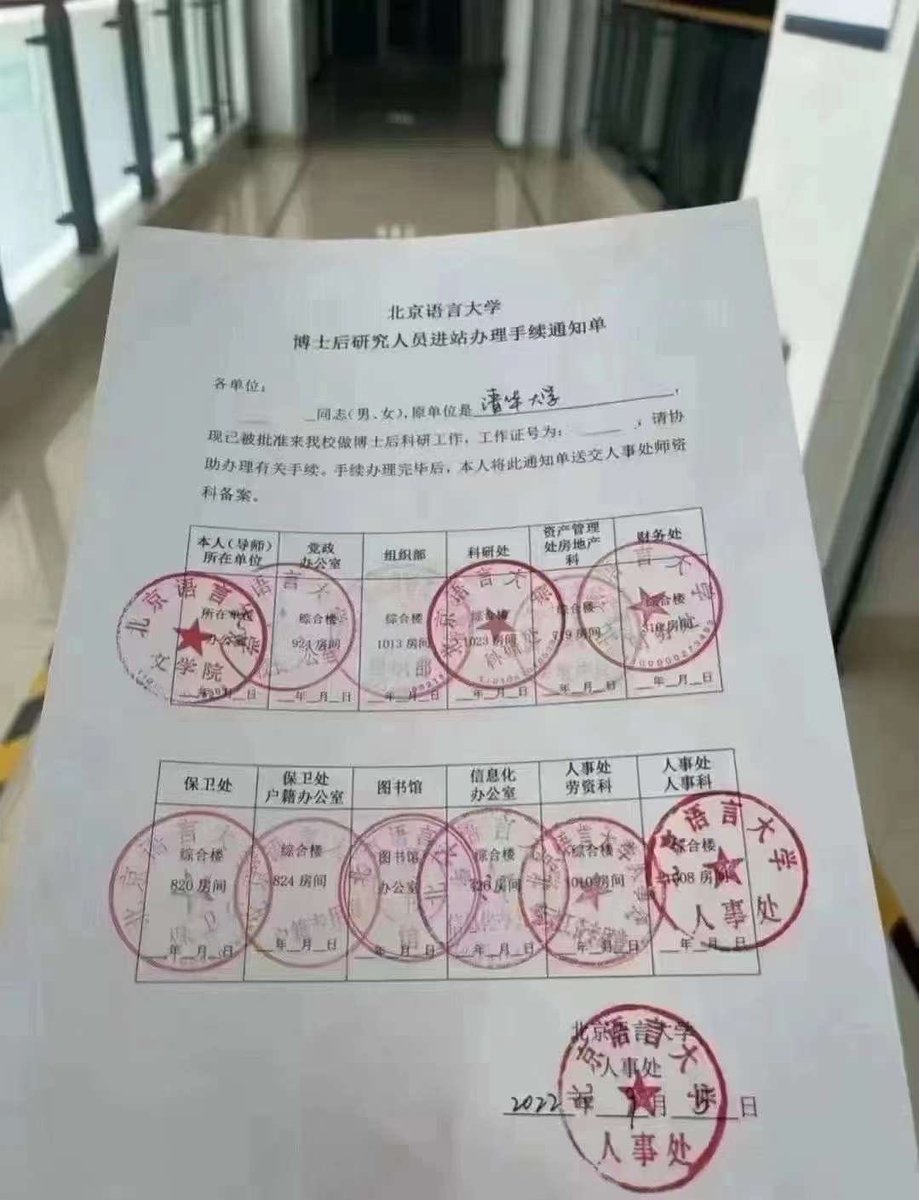 北京语言大学
博士后研究人员进站办理手续通知单
各单位：
同志（男、女），原单位是 清华大学 ，
现已被批准来我校做博士后科研工作，工作证号为： ，请协
助办理有关手续。手续办理完毕后，本人将此通知单送交人事处师资
科备案。
本人（导师）所在单位 党政办公室 组织部 科研处 资产管理处房地产科 财务处
所在单位办公室 综合楼924房间 综合楼1013房间 综合楼1023房间 综合楼 房间 综合楼 房间
北京语言大学 文学院
科研处
年 月 日 年 月 日 年 月 日 年 月 日 年 月 日 年 月 日
保卫处 保卫处户籍办公室 图书馆 信息化办公室 人事处劳资科 人事处人事科
综合楼820房间 综合楼824房间 图书馆办公室 综合楼 房间 综合楼1010房间 综合楼1008房间
语言大学 人事处
年 月 日 年 月 日 年 月 日 年 月 日 年 月 日 年 月 日
北京语言大学
人事处
2022 年 9 月 日
京语言大学 人事处